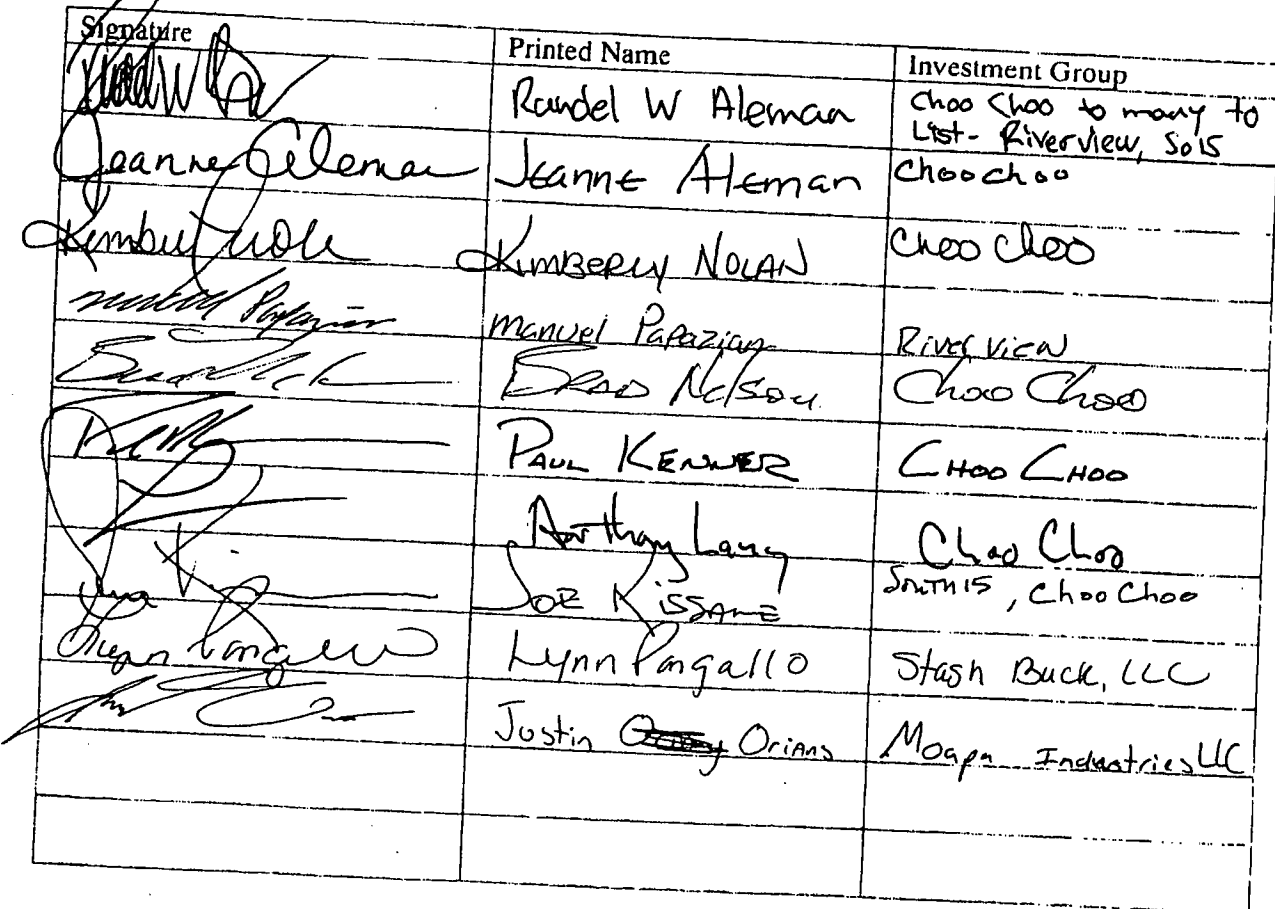 Signature Printed Name Investment Group
Randel W Aleman Choo Choo to many to
List- Riverview, So15
Jeanne Aleman Jeanne Aleman Choochoo
Kimberly Nolan Choo Choo
Papazian Manuel Papazian River View
Brad Nelson Choo Choo
Paul Kenner Choo Choo
Anthony Lang Choo Choo
Joe Kissane South 15, Choo Choo
Pangallo Lynn Pangallo Stash Buck, LLC
Justin Orians Moapa Industries LLC